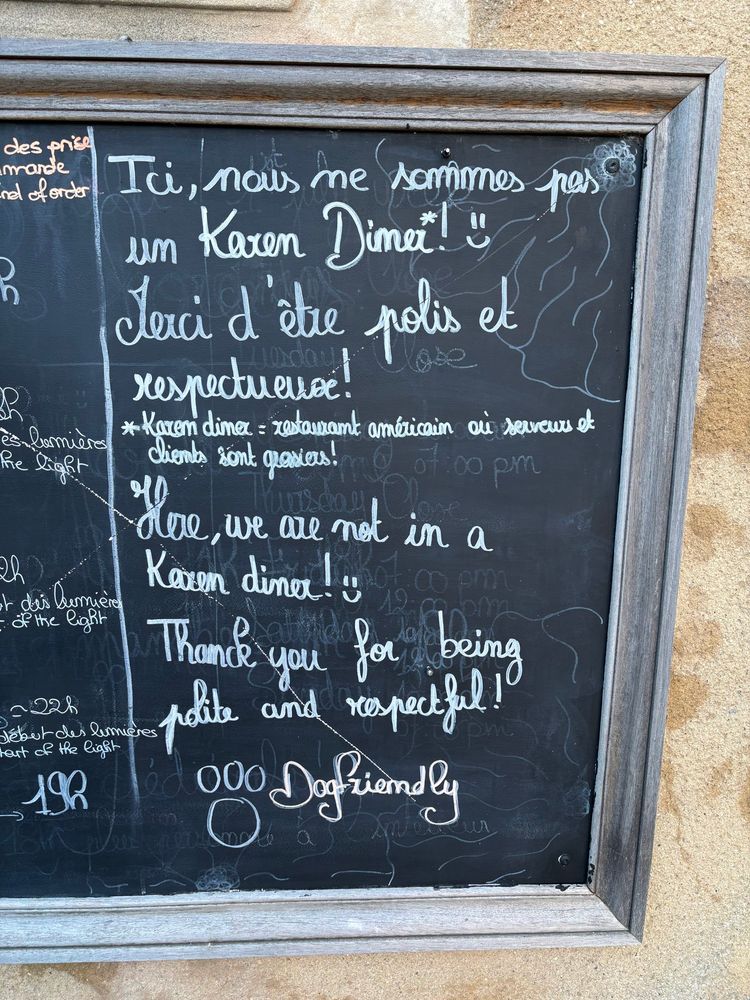 des prise
mmande
end of order
h
h
es lumières
the light
2h
t des lumières
t of the light
~22h
début des lumières
tart of the light
→ 19h
Ici, nous ne sommes pas
un Karen Diner*! :)
Merci d'être polis et
respectueux!
*Karen diner = restaurant américain où serveurs et
clients sont grossiers!
Here, we are not in a
Karen diner! :)
Thank you for being
polite and respectful!
Dogfriendly